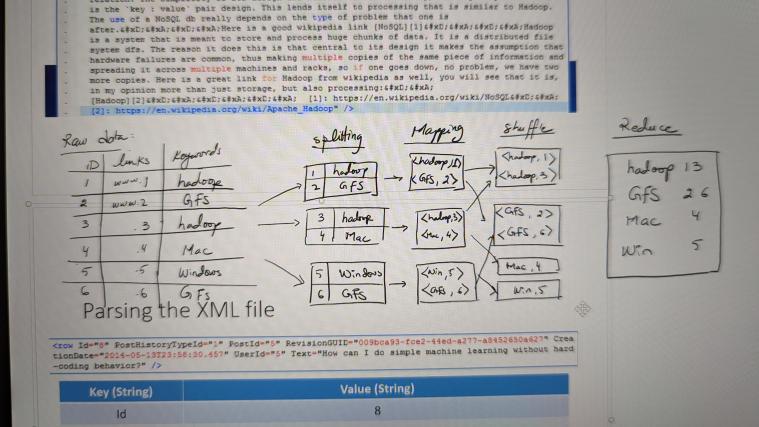 is the 'key : value' pair design. This lends itself to processing that is similar to Hadoop.
The use of a NoSQL db really depends on the type of problem that one is
after.&#xD;&#xA;&#xD;&#xA;Here is a good wikipedia link [NoSQL][1]&#xD;&#xA;&#xD;&#xA;Hadoop
is a system that is meant to store and process huge chunks of data. It is a distributed file
system dfs. The reason it does this is that central to its design it makes the assumption that
hardware failures are common, thus making multiple copies of the same piece of information and
spreading it across multiple machines and racks, so if one goes down, no problem, we have two
more copies. Here is a great link for Hadoop from wikipedia as well, you will see that it is,
in my opinion more than just storage, but also processing:&#xD;&#xA;
[Hadoop][2]&#xD;&#xA;&#xD;&#xA;&#xD;&#xA; [1]: https://en.wikipedia.org/wiki/NoSQL&#xD;&#xA;
[2]: https://en.wikipedia.org/wiki/Apache_Hadoop" />
Raw data:
ID links keywords
1 www.1 hadoop
2 www.2 GFS
3 .3 hadoop
4 .4 Mac
5 .5 Windows
6 .6 GFs
splitting
1 hadoop
2 GFS
3 hadoop
4 Mac
5 Windows
6 GFS
Mapping
<hadoop, 1>
<GFS, 2>
<hadoop, 3>
<Mac, 4>
<Win, 5>
<GFS, 6>
shuffle
<hadoop, 1>
<hadoop, 3>
<GFS, 2>
<GFS, 6>
Mac, 4
Win, 5
Reduce
hadoop 1 3
GFS 2 6
Mac 4
Win 5
Parsing the XML file
<row Id="8" PostHistoryTypeId="1" PostId="5" RevisionGUID="009bca93-fce2-44ed-a277-a8452650a627" Crea
tionDate="2014-05-13T23:58:30.457" UserId="5" Text="How can I do simple machine learning without hard
-coding behavior?" />
Key (String) Value (String)
Id 8